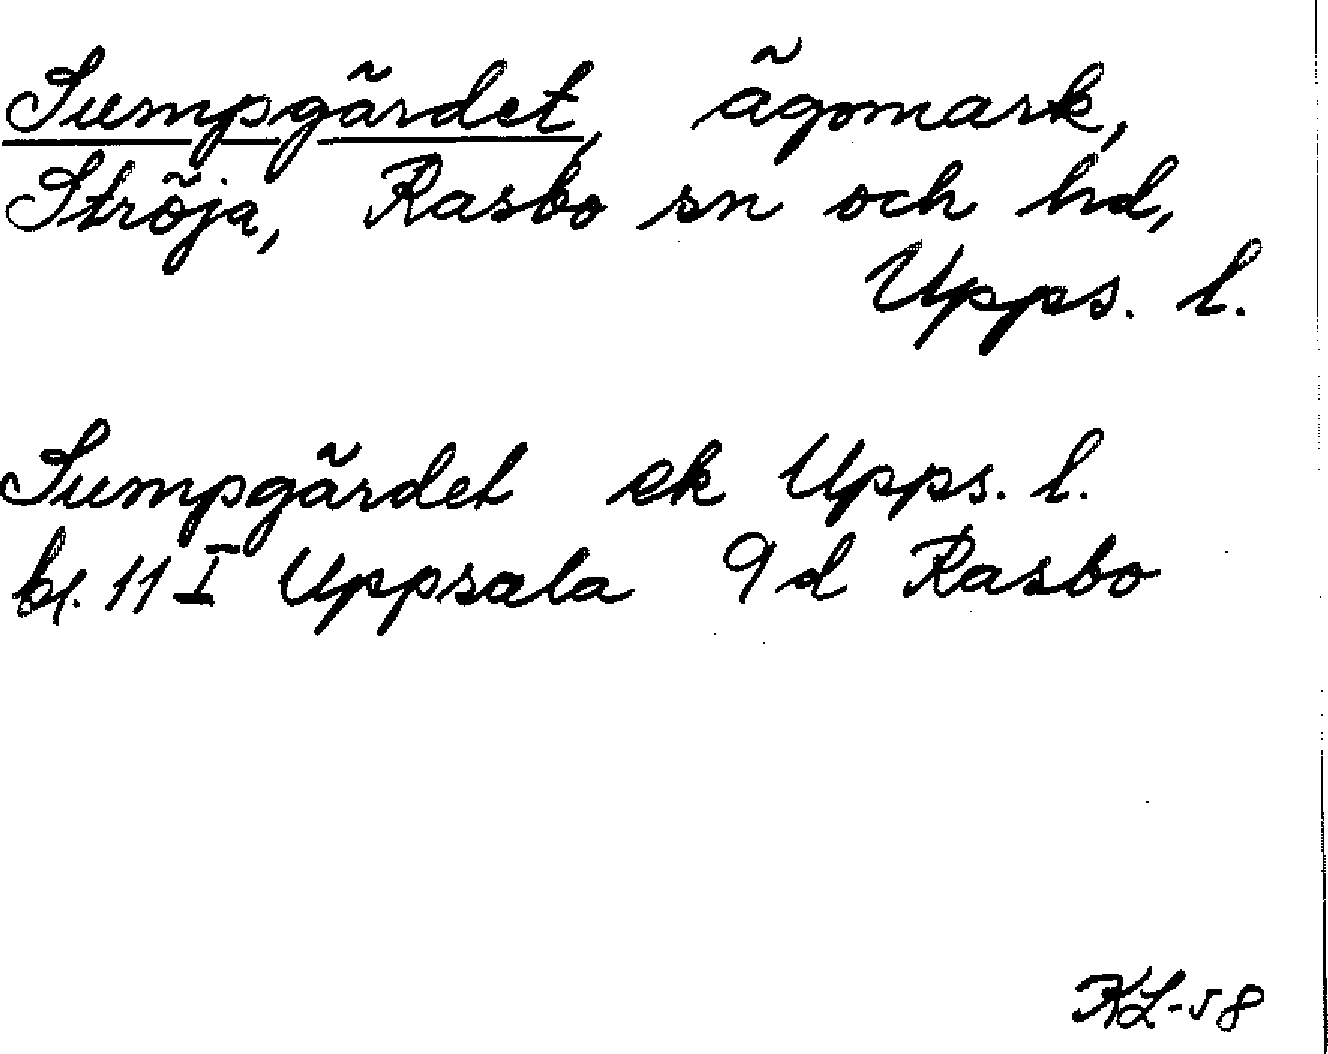 Sumpgärdet, ägomark,
Ströja, Rasbo sn och hd,
Upps. l.
Sumpgärdet ek Upps. l.
bl. 11 I Uppsala 9d Rasbo
KL-58